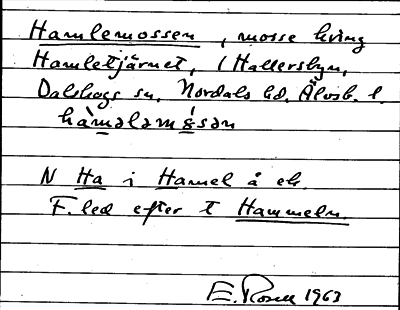 Hamlemossen, mosse kring
Hamletjärnet, i Hallersbyn,
Dalskogs sn, Nordals hd, Älvsb. l.
hàmǝlǝmǻsǝn
N Ha i Hamel å ek.
F. led efter t Hammeln.
E. Rosell 1963